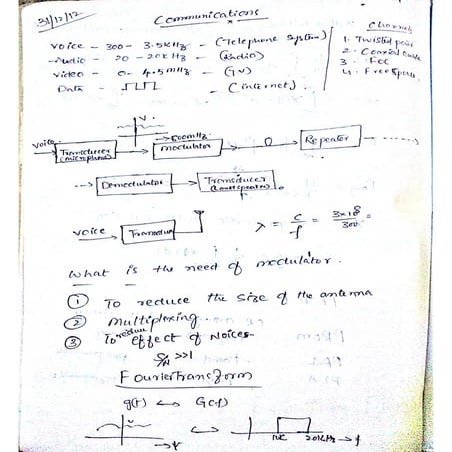 31/12/12
Communications
Voice - 300 - 3.5kHz - (Telephone System)
Audio - 20 - 20kHz - (Radio)
Video - 0 - 4.5mHz - (TV)
Data - - (internet)
Channels
1. Twisted pair
2. Coaxial cable
3. Foc
4. Free space
V
500mHz
voice
Transducer
(microphone)
modulator
Repeater
Demodulator
Transducer
voice
λ = c/f = 3×10^8/300 =
What is the need of modulator.
① To reduce the size of the antenna
② multiplexing
③ To reduce effect of Noices
S/N >>1
Fourier Transform
g(t) ↔ G(f)
20kHz → f